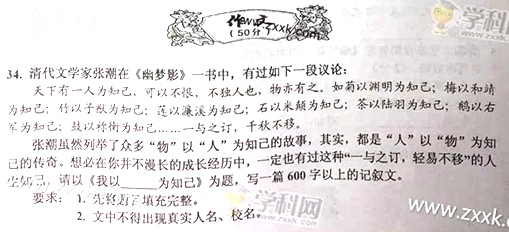 作文
(50分)
zxxk.com
学科网
34. 清代文学家张潮在《幽梦影》一书中，有过如下一段议论：
天下有一人为知己，可以不恨，不独人也，物亦有之。如菊以渊明为知己；梅以和靖
为知己；竹以子猷为知己；莲以濂溪为知己；石以米颠为知己；茶以陆羽为知己；鹅以右
军为知己；鼓以祢衡为知己……一与之订，千秋不移。
张潮虽然列举了众多“物”以“人”为知己的故事，其实，都是“人”以“物”为知
己的传奇。想必在你并不漫长的成长经历中，一定也有过这种“一与之订，轻易不移”的人
生知己，请以《我以____为知己》为题，写一篇 600 字以上的记叙文。
要求：1. 先将题目填充完整。
2. 文中不得出现真实人名、校名。
学科网
www.zxxk.com